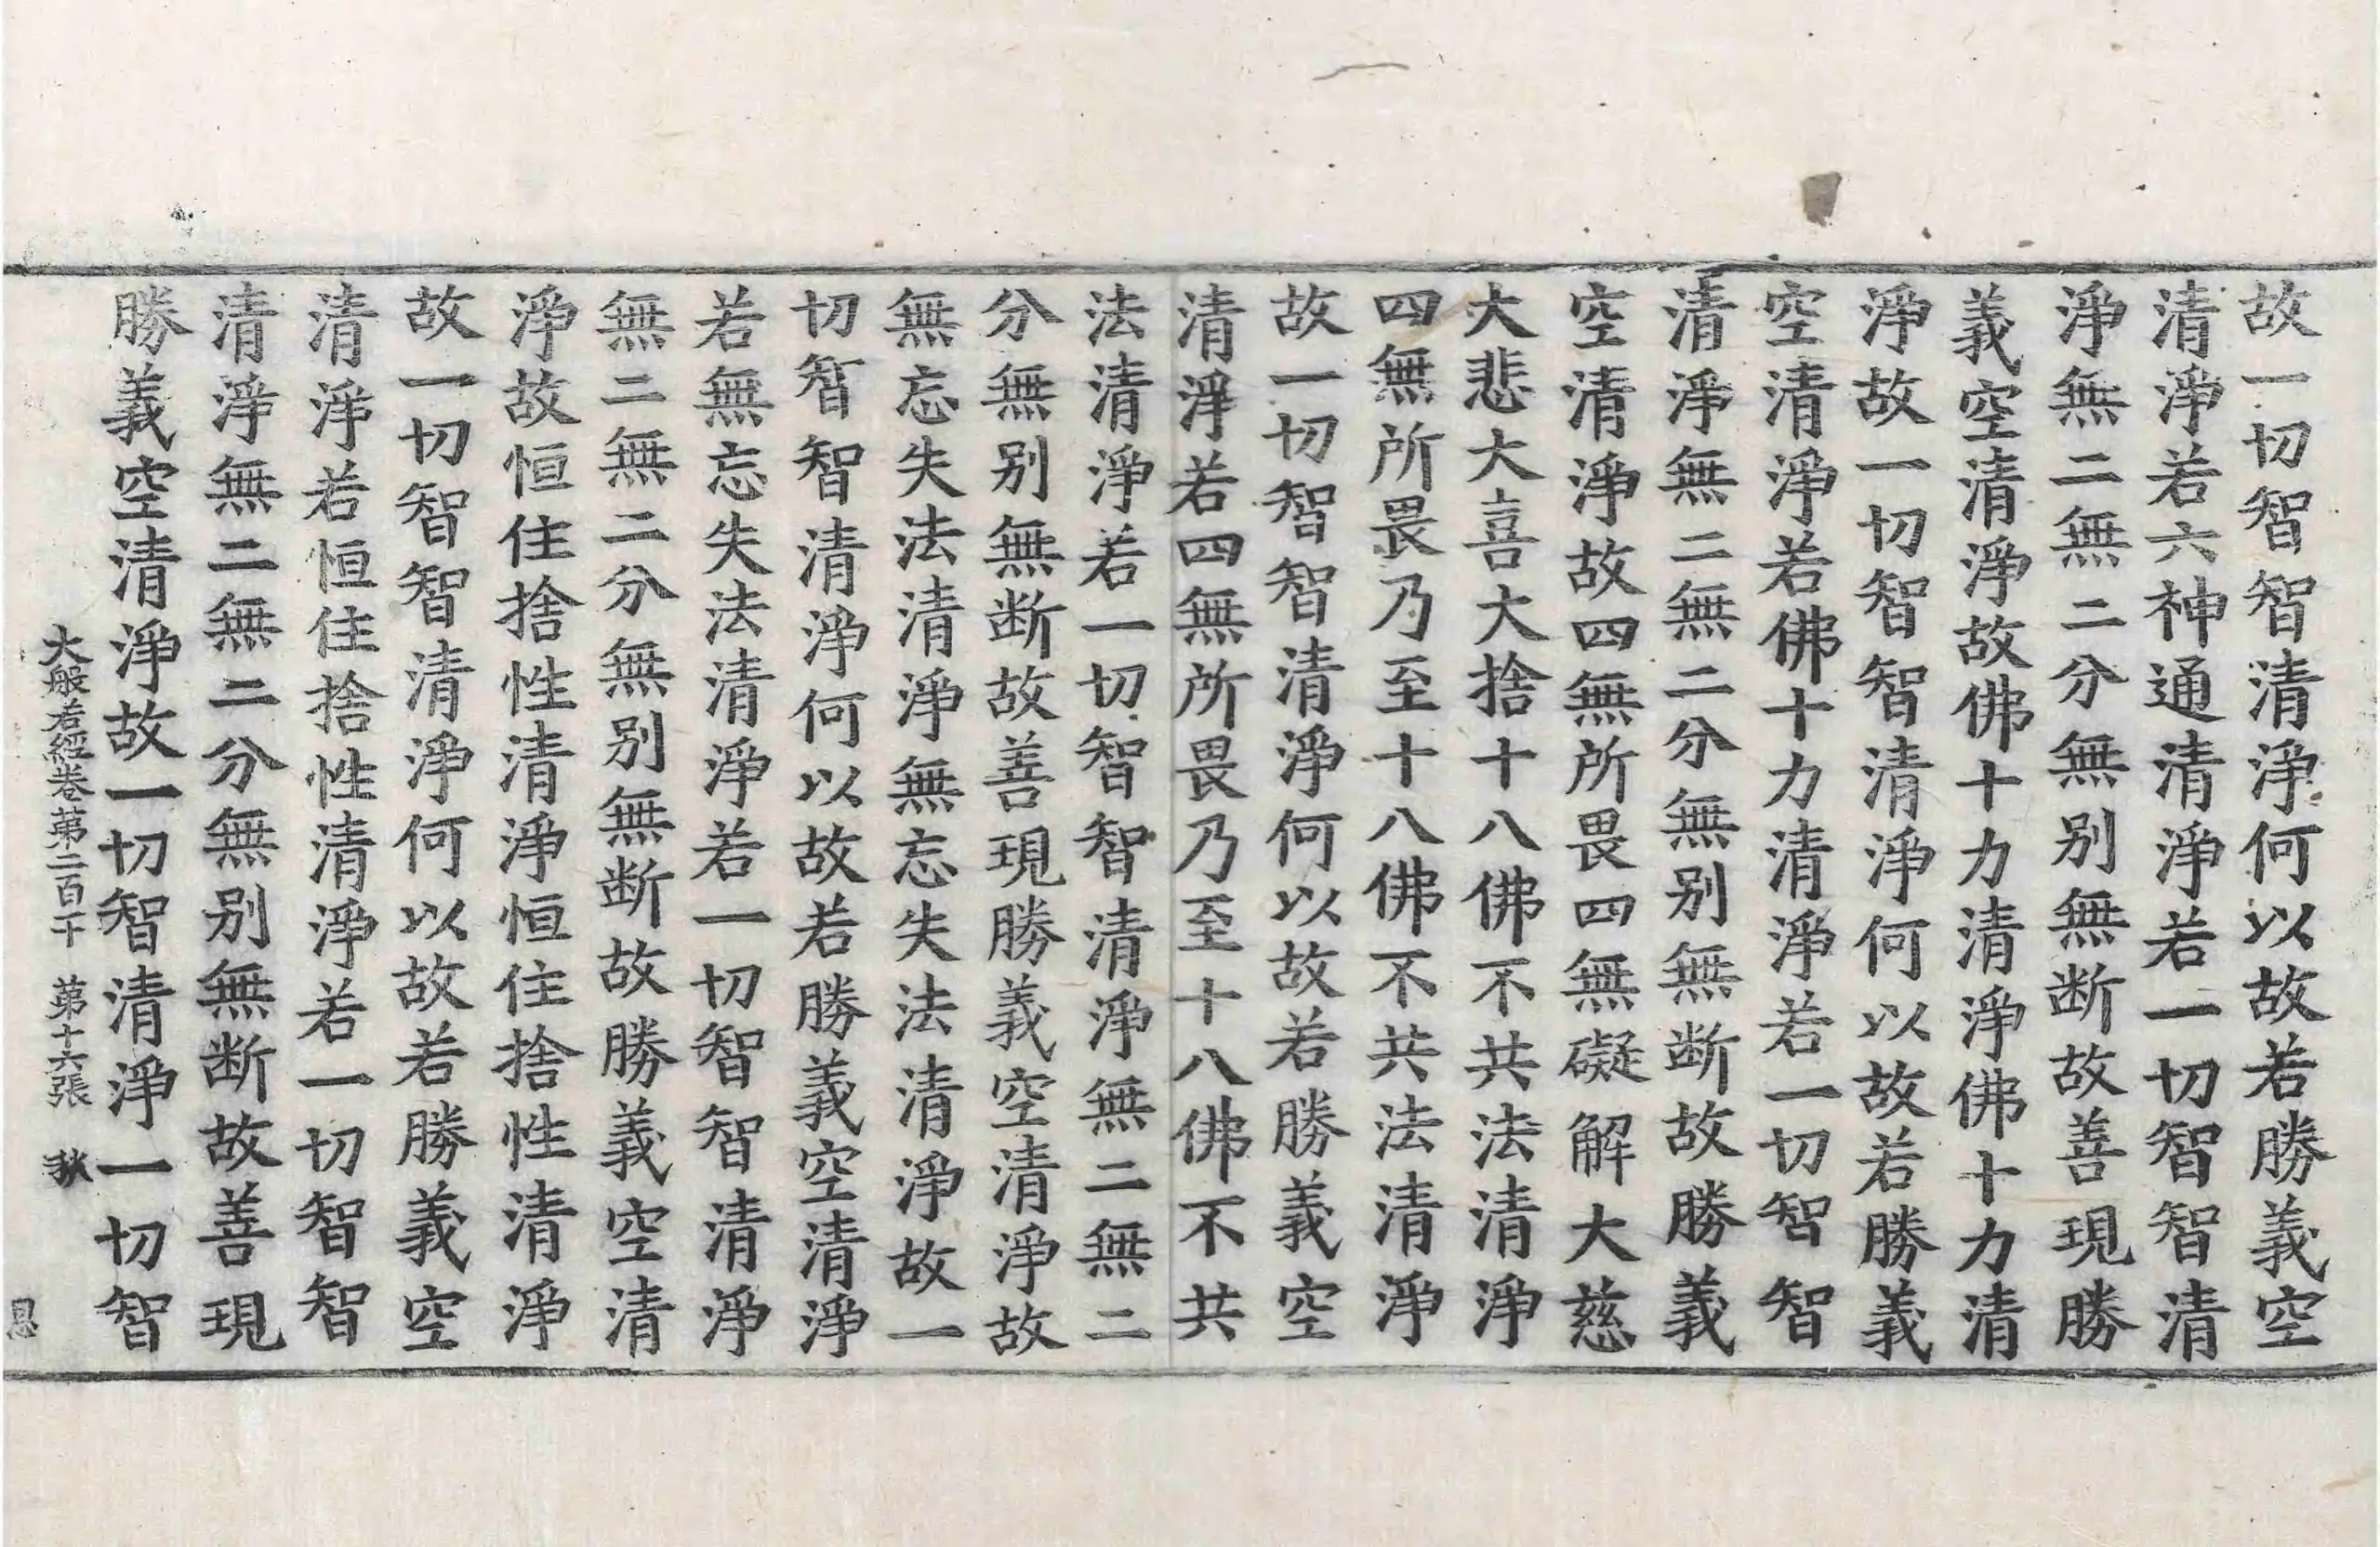 故一切智智清淨何以故若勝義空
清淨若六神通清淨若一切智智清
淨無二無二分無別無斷故善現勝
義空清淨故佛十力清淨佛十力清
淨故一切智智清淨何以故若勝義
空清淨若佛十力清淨若一切智智
清淨無二無二分無別無斷故勝義
空清淨故四無所畏四無礙解大慈
大悲大喜大捨十八佛不共法清淨
四無所畏乃至十八佛不共法清淨
故一切智智清淨何以故若勝義空
清淨若四無所畏乃至十八佛不共
法清淨若一切智智清淨無二無二
分無別無断故善現勝義空清淨故
無忘失法清淨無忘失法清淨故一
切智智清淨何以故若勝義空清淨
若無忘失法清淨若一切智智清淨
無二無二分無別無断故勝義空清
淨故恒住捨性清淨恒住捨性清淨
故一切智智清淨何以故若勝義空
清淨若恒住捨性清淨若一切智智
清淨無二無二分無別無断故善現
勝義空清淨故一切智清淨一切智
大般若經卷苐二百十 苐十六張